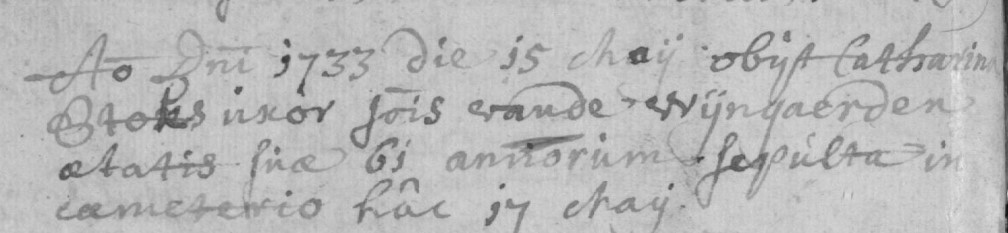 Ao Dni 1733 die 15 Maij obijt Catharina
Stoks uxor Jois vande Wijngaerden
ætatis suæ 61 annorum sepulta in
cæmeterio hâc 17 Maij.